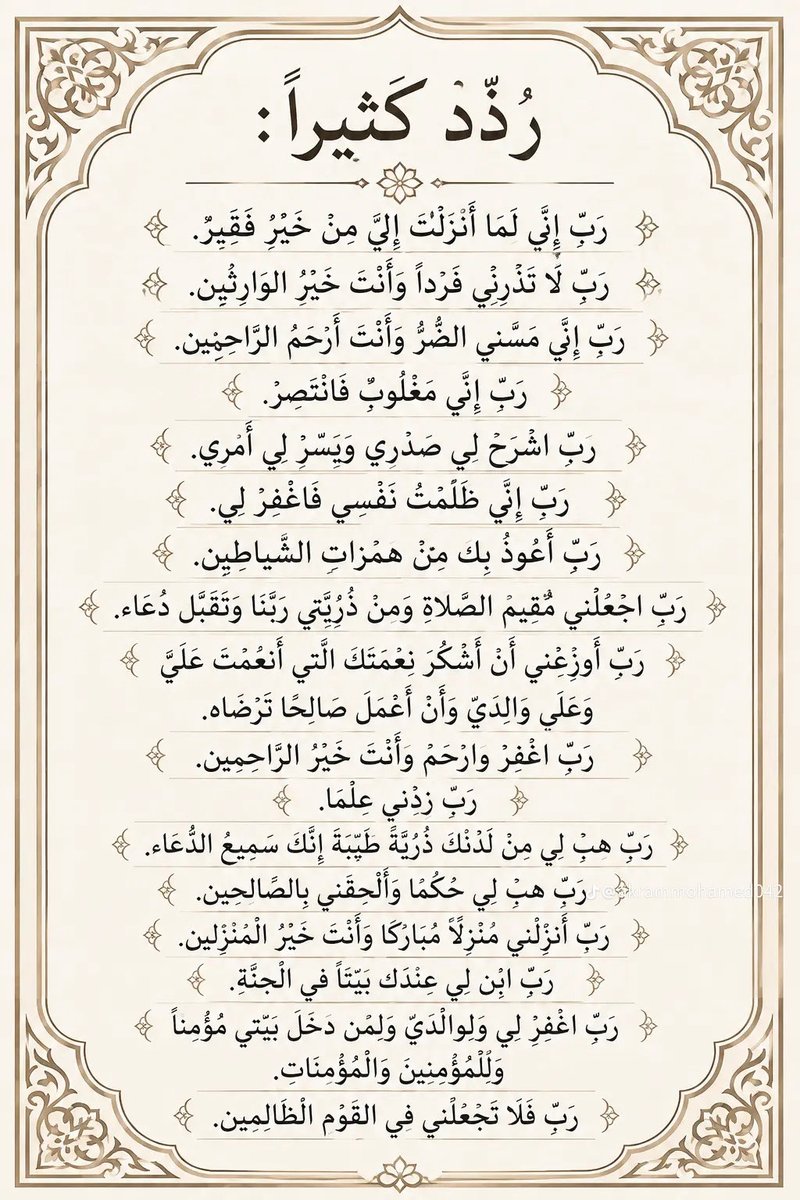 رُدِّد كَثيراً:
رَبِّ إِنَّي لَمَا أَنْزَلْتَ إِليَّ مِنْ خَيْرُ فَقِيرٌ.
رَبِّ لَا تَذْرِنْي فَرْداً وَأَنْتَ خَيْرُ الوَارِثْيِن.
رَبِّ إِنَّي مَسَّني الضُّرُّ وَأَنْتَ أَرْحَمُ الرَّاحِمِْين.
رَبِّ إِنَّي مَغْلُوبٌ فَانْتَصِرْ.
رَبِّ اشْرَحْ لِي صَدْرِي وَيَسِّرْ لِي أَمْرِي.
رَبِّ إِنَّي ظَلَمْتُ نَفْسِي فَاغْفِرْ لِي.
رَبِّ أَعُوذُ بِكَ مِنْ همْزاتِ الشَّياطِيِن.
رَبِّ اجْعُلْني مُّقِيمْ الصَّلاةِ وَمِنْ ذُرِيَّتِي رَبَّنَا وَتَقَبَّل دُعَاء.
رَبِّ أَوزِعْني أَنْ أَشْكُرَ نِعْمَتَكَ الَّتي أَنعُمْتَ عَلَيَّ
وَعَلَي وَالِدَيّ وَأَنْ أَعْمَلَ صَالِحًا تَرْضَاه.
رَبِّ اغْفِرْ وارْحَمْ وَأَنْتَ خَيْرُ الرَّاحِمِين.
رَبِّ زدْني عِلْمَا.
رَبِّ هبْ لِي مِنْ لَدْنْكَ ذُرُيَّةً طَيِّبَةَ إِنَّكَ سَمِيعُ الدُّعَاء.
رَبِّ هبْ لِي حُكْمًا وَأَلْحِقَني بِالصًالحِين.
@akrammohamed042
رَبِّ أَنزِلْني مُنْزِلًاً مُبَارَكَا وَأَنْتَ خَيْرُ الْمُنْزِلين.
رَبِّ ابْن لِي عِنْدَك بَيْتَاً في الْجنَّةِ.
رَبِّ اغْفِرِ لِي وَلِوالْدَيّ وَلِمْن دَخَلَ بَيْتي مُؤُمِناً
وَلِلْمُؤْمِنِينَ وَالْمُؤْمِنَاتِ.
رَبِّ فَلَا تَجْعُلْني فِي القَوْم الْظَالِمِين.